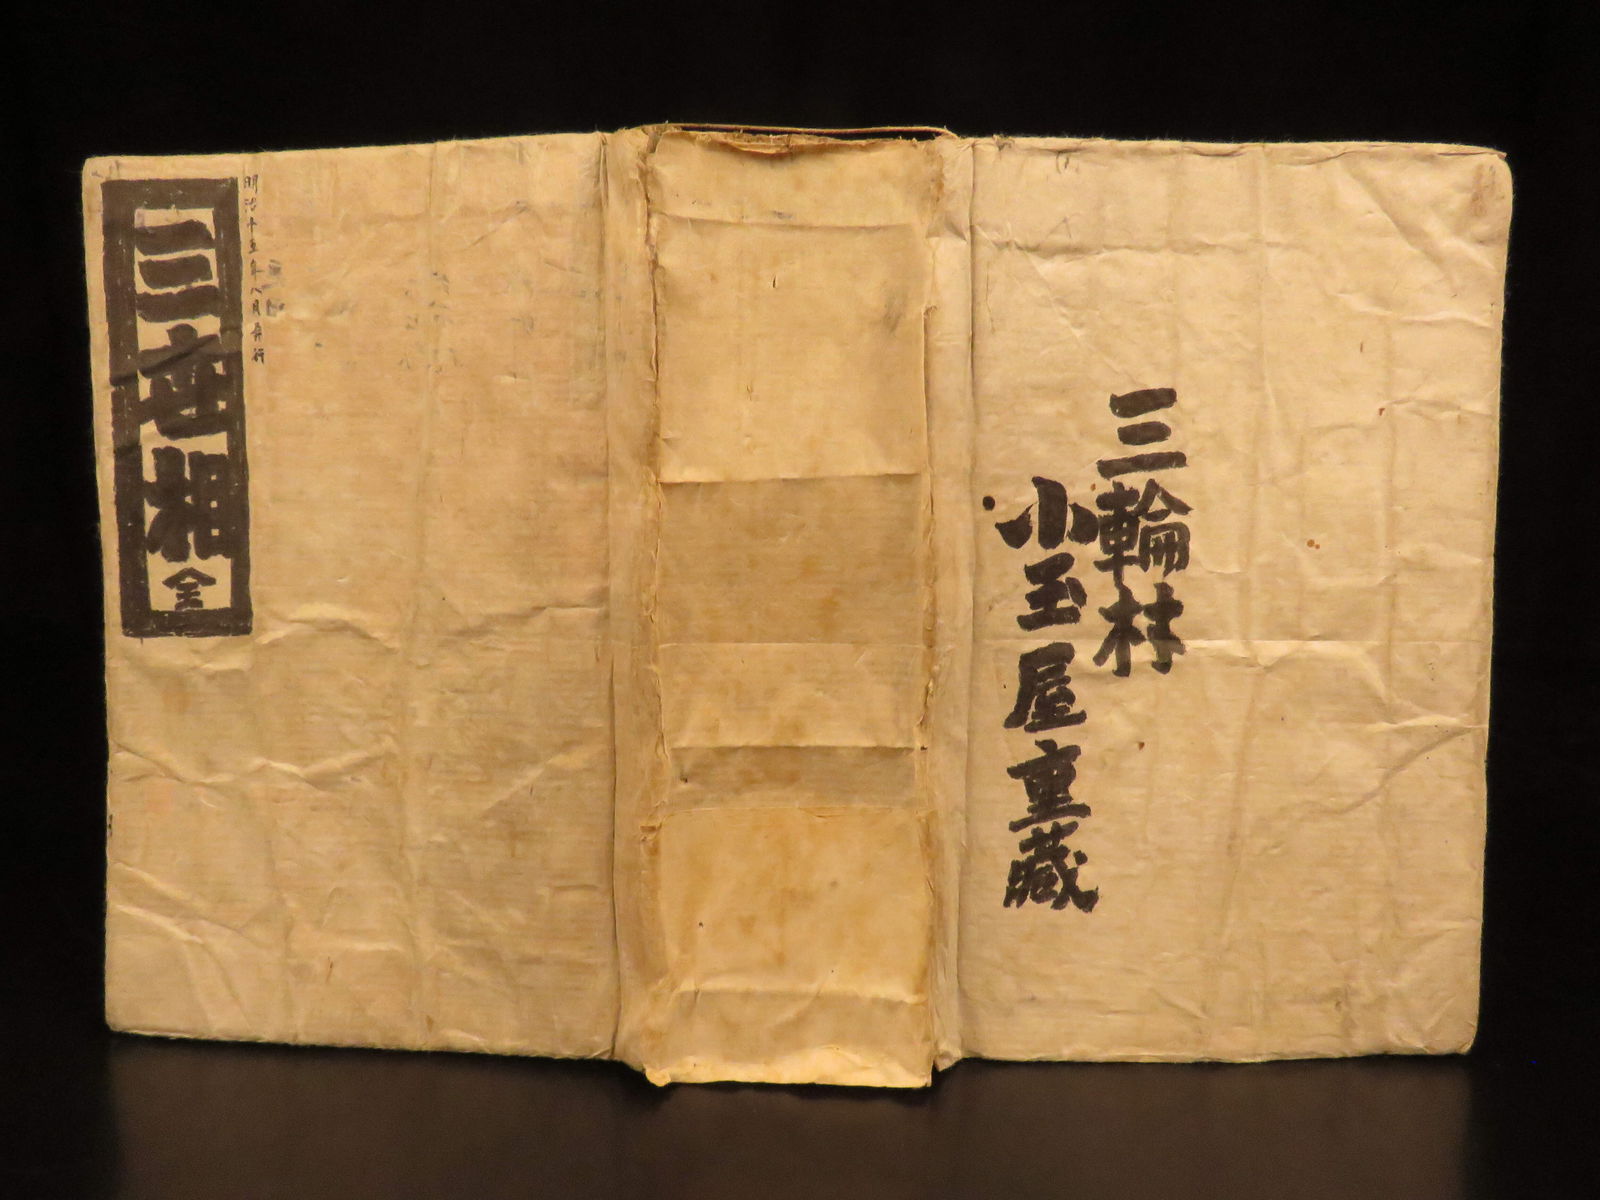 三世相 全
明治十五年八月再行
三輪村
小玉屋重藏